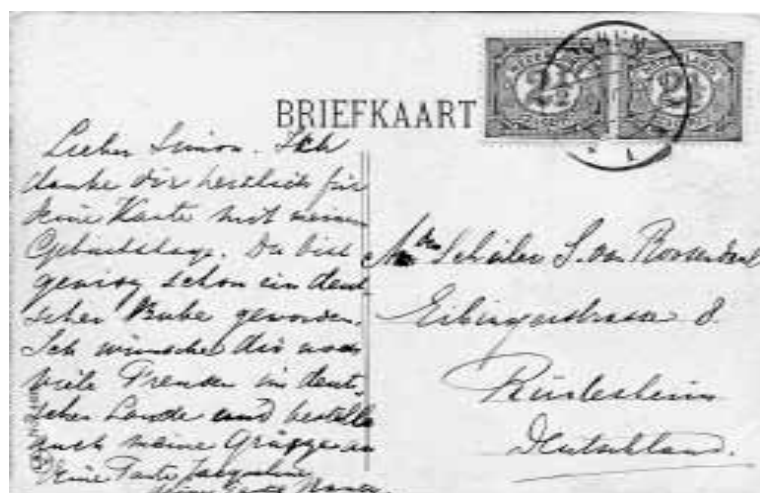 BRIEFKAART
NEDERLAND
2½
NEDERLAND
2½
Lieber Simon. Ich
danke dir herzlich für
deine Karte mit meinem
Geburtstage. Du bist
gewiss schon ein deut-
scher Bube geworden.
Ich wünsche dir noch
viele Freuden im deut-
schen Lande und bestelle
auch meine Grüsse an
deine Tante Jacqueline
Tante
An den Schüler S. van Roosendaal
Eibingerstrasse 8.
Rüdesheim
Deutschland.